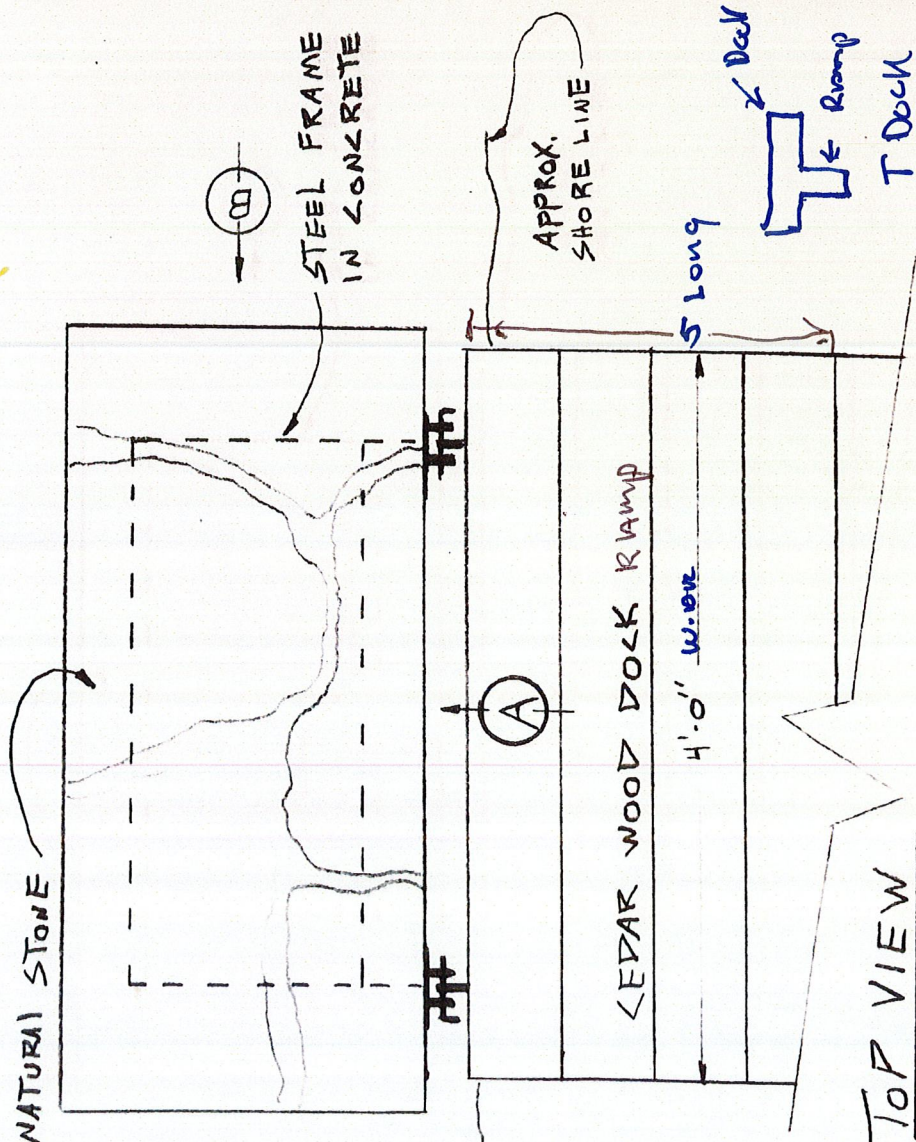 NATURAL STONE
B
STEEL FRAME
IN CONCRETE
APPROX.
SHORE LINE
A
CEDAR WOOD DOCK Ramp
4'-0" Wide
5 Long
Dock
Ramp
T Dock
TOP VIEW